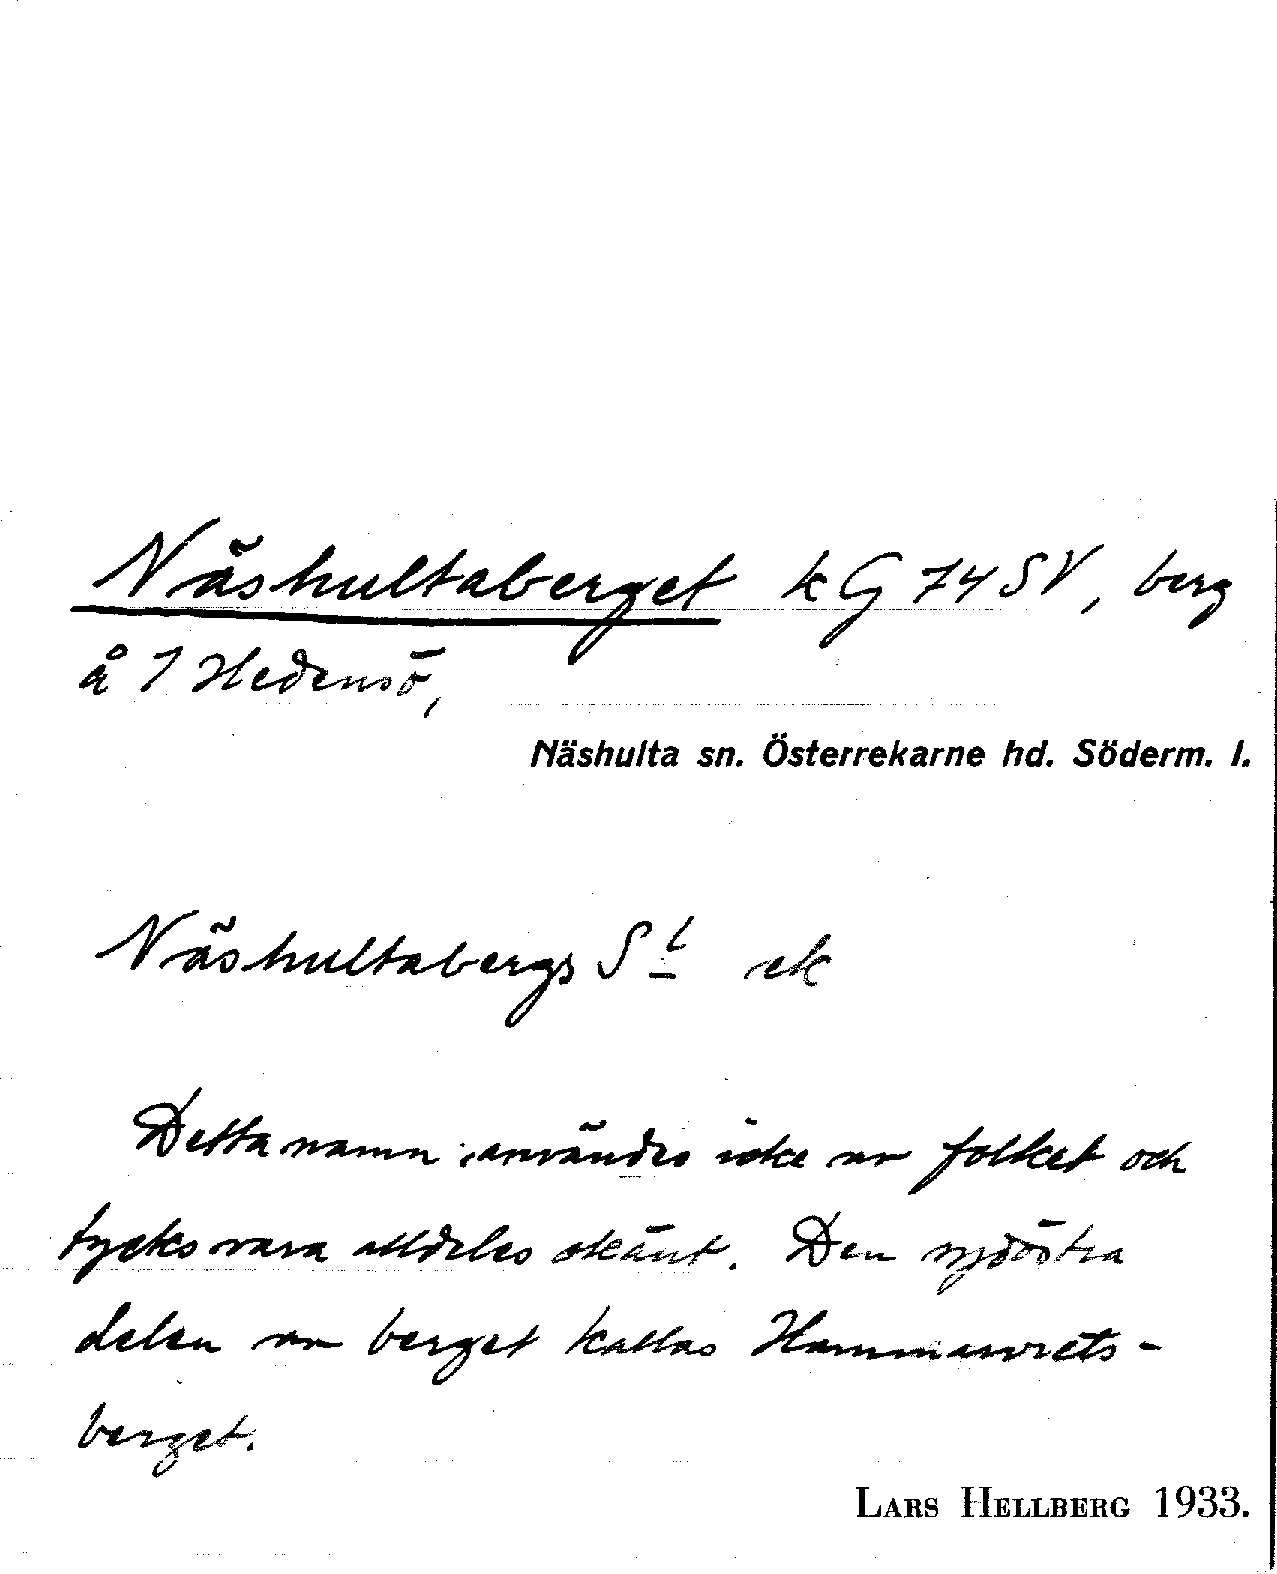 Näshultaberget kG 74 SV, berg
å 7 Hedensö,
Näshulta sn. Österrekarne hd. Söderm. l.
Näshultabergs ek
Detta namn användes icke av folket och
tycks vara alldeles okänt. Den sydöstra
delen av berget kallas Hammarvrets-
berget.
LARS HELLBERG 1933.